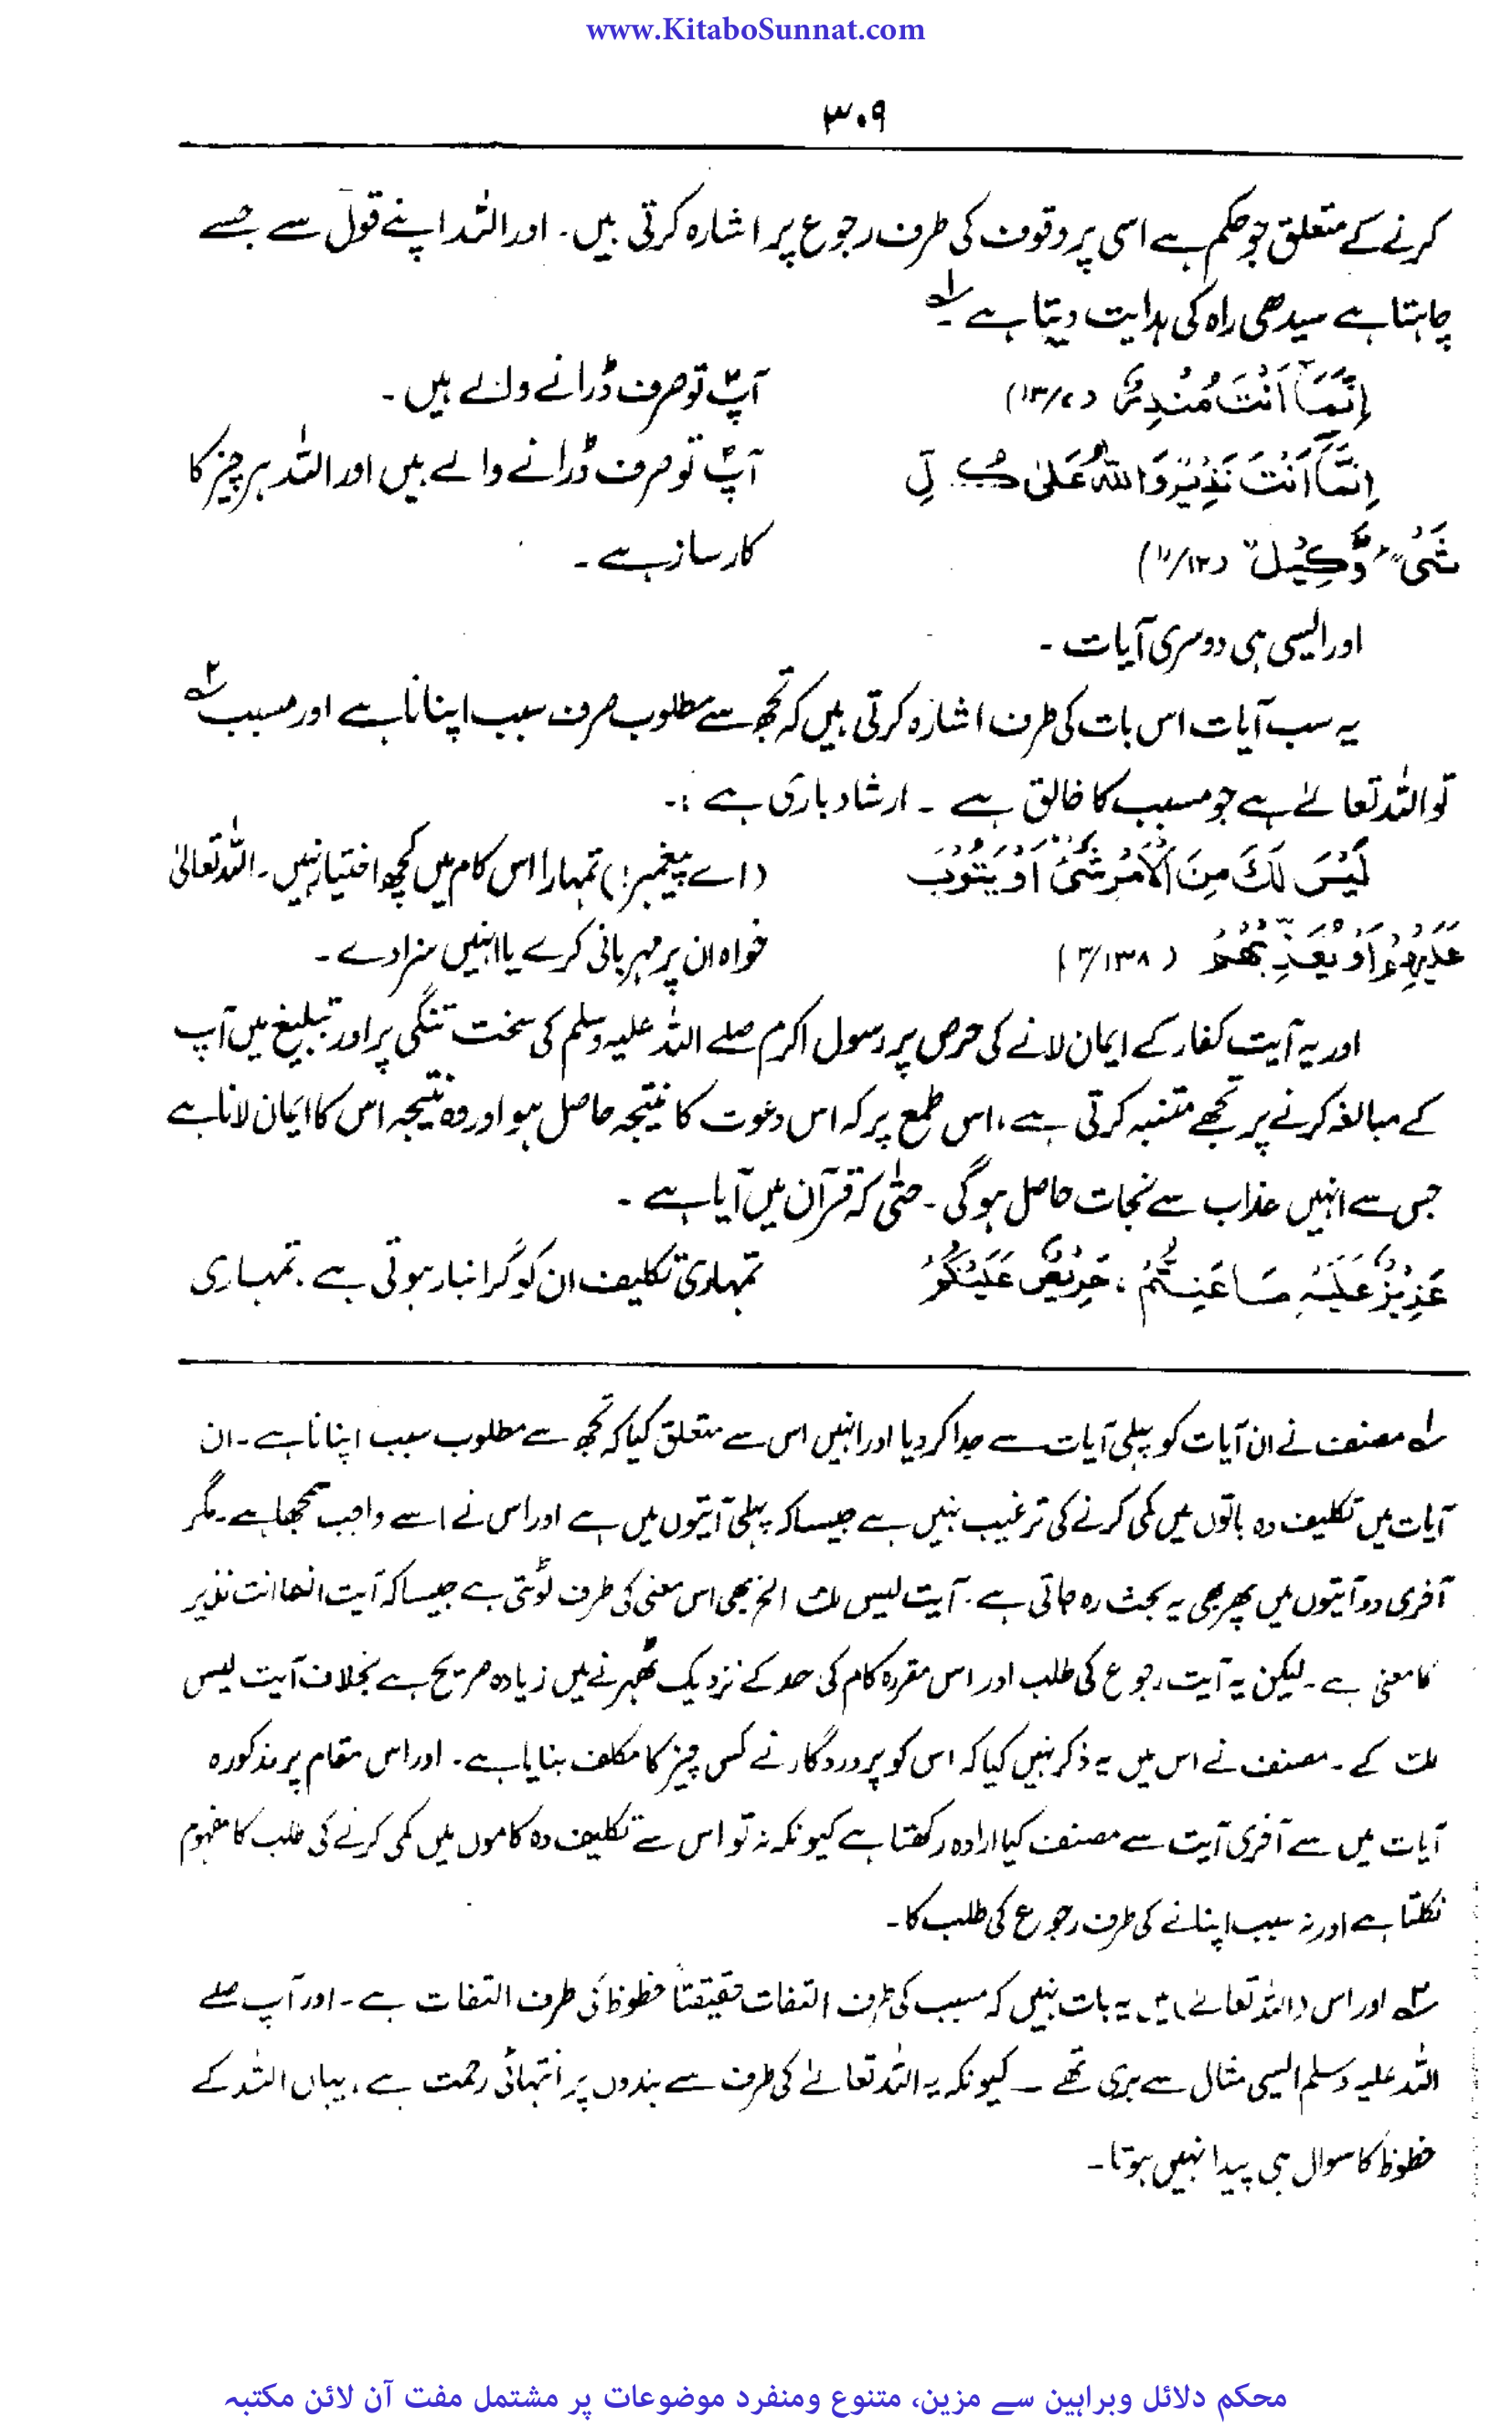 www.KitaboSunnat.com
۳۰۹
کرنے کے متعلق جو حکم ہے اسی پر وقوف کی طرف رجوع پر اشارہ کرتی ہیں۔ اور اللہ اپنے قول سے جسے
چاہتا ہے سیدھی راہ کی ہدایت دیتا ہے۔ ۱؎
اِنَّمَآ اَنْتَ مُنْذِرٌ (۱۳/۷) آپؐ تو صرف ڈرانے والے ہیں۔
اِنَّمَآ اَنْتَ نَذِيْرٌ وَاللّٰهُ عَلٰى كُلِّ آپؐ تو صرف ڈرانے والے ہیں اور اللہ ہر چیز کا
شَىْءٍ وَّكِيْلٌ (۱۱/۱۲) کارساز ہے۔
اور ایسی ہی دوسری آیات۔
یہ سب آیات اس بات کی طرف اشارہ کرتی ہیں کہ تجھ سے مطلوب صرف سبب اپنانا ہے اور مسبب ۲؎
تو اللہ تعالےٰ ہے جو مسبب کا خالق ہے ۔ ارشاد باری ہے :۔
لَيْسَ لَكَ مِنَ الْاَمْرِ شَىْءٌ اَوْ يَتُوْبَ (اے پیغمبر!) تمہارا اس کام میں کچھ اختیار نہیں۔ اللہ تعالیٰ
عَلَيْهِمْ اَوْ يُعَذِّبَهُمْ (۳/۱۳۸) خواہ ان پر مہربانی کرے یا انہیں سزا دے۔
اور یہ آیت کفار کے ایمان لانے کی حرص پر رسول اکرم صلے اللہ علیہ وسلم کی سخت تنگی پر اور تبلیغ میں آپ
کے مبالغہ کرنے پر تجھے متنبہ کرتی ہے، اس طمع پر کہ اس دعوت کا نتیجہ حاصل ہو اور وہ نتیجہ اس کا ایمان لانا ہے
جس سے انہیں عذاب سے نجات حاصل ہو گی۔ حتٰی کہ قرآن میں آیا ہے۔
عَزِيْزٌ عَلَيْهِ مَا عَنِتُّمْ، حَرِيْصٌ عَلَيْكُمْ تمہاری تکلیف ان کو گرانبار ہوتی ہے۔ تمہاری
۱؎ مصنف نے ان آیات کو پہلی آیات سے جدا کر دیا اور انہیں اس سے متعلق کیا کہ تجھ سے مطلوب سبب اپنانا ہے۔ ان
آیات میں تکلیف دہ باتوں میں کمی کرنے کی ترغیب نہیں ہے جیسا کہ پہلی آیتوں میں ہے اور اس نے اسے واجب سمجھا ہے۔ مگر
آخری دو آیتوں میں پھر بھی یہ بحث رہ جاتی ہے۔ آیت لیس لک الخ بھی اس معنی کی طرف لوٹتی ہے جیسا کہ آیت انما انت نذیر
کا معنی ہے۔ لیکن یہ آیت رجوع کی طلب اور اس مقررہ کام کی حد کے نزدیک ٹھہرنے میں زیادہ صریح ہے بخلاف آیت لیس
لک کے ۔ مصنف نے اس میں یہ ذکر نہیں کیا کہ اس کو پروردگار نے کس چیز کا مکلف بنایا ہے۔ اور اس مقام پر مذکورہ
آیات میں سے آخری آیت سے مصنف کیا ارادہ رکھتا ہے کیونکہ نہ تو اس سے تکلیف دہ کاموں میں کمی کرنے کی طلب کا مفہوم
نکلتا ہے اور نہ سبب اپنانے کی طرف رجوع کی طلب کا۔
۲؎ اور اس (اللہ تعالےٰ) میں یہ بات نہیں کہ مسبب کی طرف التفات حقیقتاً حظوظ کی طرف التفات ہے۔ اور آپ صلے
اللہ علیہ وسلم ایسی مثال سے بری تھے ۔ کیونکہ یہ اللہ تعالےٰ کی طرف سے بندوں پر انتہائی رحمت ہے، یہاں اللہ کے
حظوظ کا سوال ہی پیدا نہیں ہوتا۔
محکم دلائل وبراہین سے مزین، متنوع ومنفرد موضوعات پر مشتمل مفت آن لائن مکتبہ